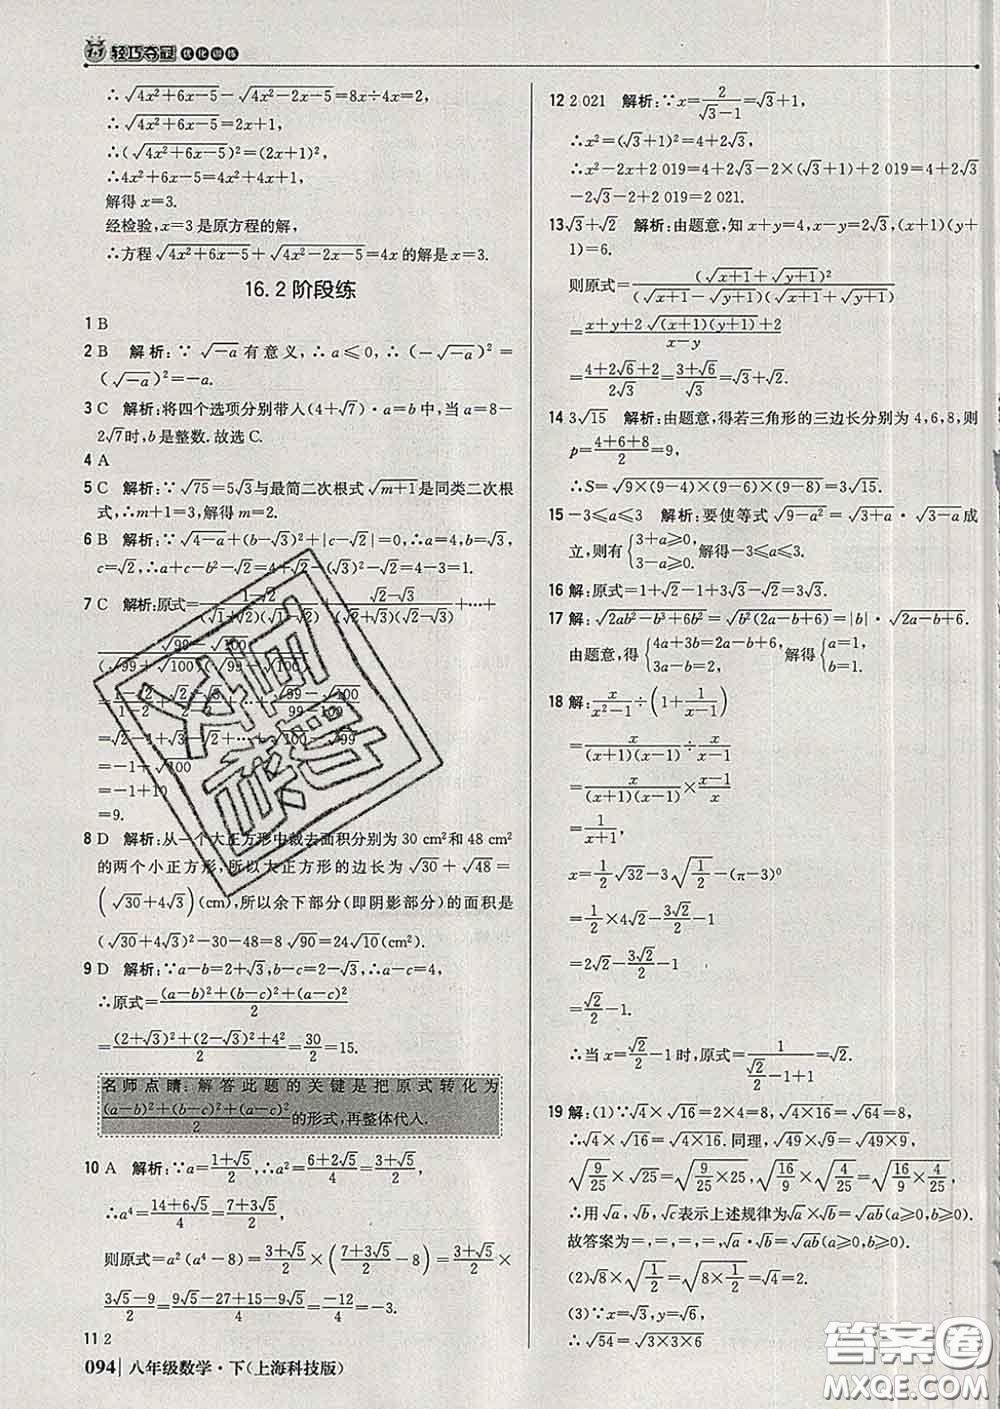 1+1 轻巧夺冠 优化训练
∴√(4x²+6x-5)-√(4x²-2x-5)=8x÷4x=2,
∴√(4x²+6x-5)=2x+1,
∴(√(4x²+6x-5))²=(2x+1)²,
∴4x²+6x-5=4x²+4x+1,
∴2x=6,
解得x=3.
经检验,x=3是原方程的解,
∴方程√(4x²+6x-5)+√(4x²-2x-5)=4x的解是x=3.
16.2 阶段练
1 B
2 B 解析:∵√(-a)有意义,∴a≤0,∴(-√(-a))²=
(√(-a))²=-a.
3 C 解析:将四个选项分别带人(4+√7)·a=b中,当a=8-
2√7时,b是整数.故选C.
4 A
5 C 解析:∵√75=5√3与最简二次根式√(m+1)是同类二次根
式,∴m+1=3,解得m=2.
6 B 解析:∵√(4-a)+(b-√3)²+|c-√2|=0,∴a=4,b=√3,
c=√2,∴a+b²-√2c=4+3-2=... 
7 C 解析:原式=(1-√2)/((1+√2)(1-√2))+(√2-√3)/((√2+√3)(√2-√3))+…+
(√99-√100)/((√99+√100)(√99-√100))
=(1-√2)/(1-2)+(√2-√3)/(2-3)+…+(√99-√100)/(99-100)
=-1+√2-√2+√3-…+√100-√99
=-1+√100
=-1+10
=9.
8 D 解析:从一个大正方形中裁去面积分别为30 cm²和48 cm²
的两个小正方形,所以大正方形的边长为√30+√48=
(√30+4√3)(cm),所以余下部分(即阴影部分)的面积是
(√30+4√3)²-30-48=8√90=24√10(cm²).
9 D 解析:∵a-b=2+√3,b-c=2-√3,∴a-c=4,
∴原式=((a-b)²+(b-c)²+(a-c)²)/2
=((2+√3)²+(2-√3)²+4²)/2=30/2=15.
名师点睛:解答此题的关键是把原式转化为
((a-b)²+(b-c)²+(a-c)²)/2的形式,再整体代入.
10 A 解析:∵a=(1+√5)/2,∴a²=(6+2√5)/4=(3+√5)/2,
∴a⁴=(14+6√5)/4=(7+3√5)/2,
则原式=a²(a⁴-8)=(3+√5)/2×((7+3√5)/2-8)=(3+√5)/2×
(3√5-9)/2=(9√5-27+15-9√5)/4=-12/4=-3.
11 2
094 八年级数学·下(上海科技版)
12 2 021 解析:∵x=2/(√3-1)=√3+1,
∴x²=(√3+1)²=4+2√3,
∴x²-2x+2 019=4+2√3-2×(√3+1)+2 019=4+2√3
-2√3-2+2 019=2 021.
13 √3+√2 解析:由题意,知x+y=4,x-y=2√3,(x+1)(y+
1)=6.
则原式=(√(x+1)+√(y+1))²/((√(x+1)-√(y+1))(√(x+1)+√(y+1)))
=(x+y+2√((x+1)(y+1))+2)/(x-y)
=(4+2√6+2)/(2√3)=(3+√6)/√3=√3+√2.
14 3√15 解析:由题意,得若三角形的三边长分别为4,6,8,则
p=(4+6+8)/2=9,
∴S=√(9×(9-4)×(9-6)×(9-8))=3√15.
15 -3≤a≤3 解析:要使等式√(9-a²)=√(3+a)·√(3-a)成
立,则有{3+a≥0, 3-a≥0. 解得-3≤a≤3.
16 解:原式=1+√2-1+3√3-√2=3√3.
17 解:√(2ab²-b³+6b²)=√(b²(2a-b+6))=|b|·√(2a-b+6).
由题意,得{4a+3b=2a-b+6, 3a-b=2. 解得{a=1, b=1.
18 解:x/(x²-1)÷(1+1/(x-1))
=x/((x+1)(x-1))÷x/(x-1)
=x/((x+1)(x-1))×(x-1)/x
=1/(x+1),
x=1/2√32-3√(1/2)-(π-3)⁰
=1/2×4√2-3√2/2-1
=2√2-3√2/2-1
=√2/2-1.
∴当x=√2/2-1时,原式=1/(√2/2-1+1)=√2.
19 解:(1)∵√4×√16=2×4=8,√(4×16)=√64=8,
∴√4×√16=√(4×16).同理,√49×√9=√(49×9),
√(9/25)×√(25/16)=√(9/25×25/16),√(16/9)×√(4/25)=√(16/9×4/25),
∴用√a,√b,√c表示上述规律为√a×√b=√(ab)(a≥0,b≥0).
故答案为=,=,=,√a·√b=√(ab)(a≥0,b≥0).
(2)√8×√(1/2)=√(8×1/2)=√4=2.
(3)∵x=√3,y=√6,
∴√54=√(3×3×6)
答案圈
MXQE.COM